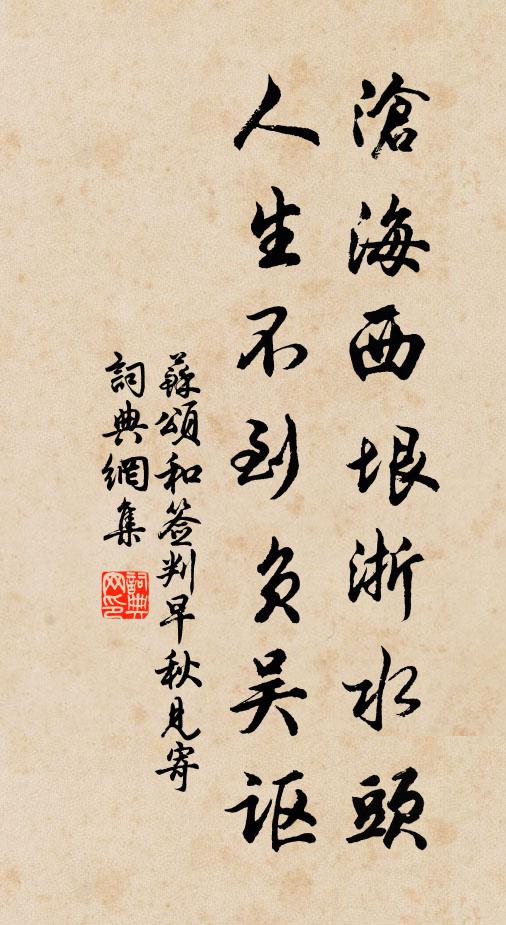 滄海西垠浙水頭
人生不到負吴謳
蘇頌和签判早秋見寄
詞典網集
詞典网印